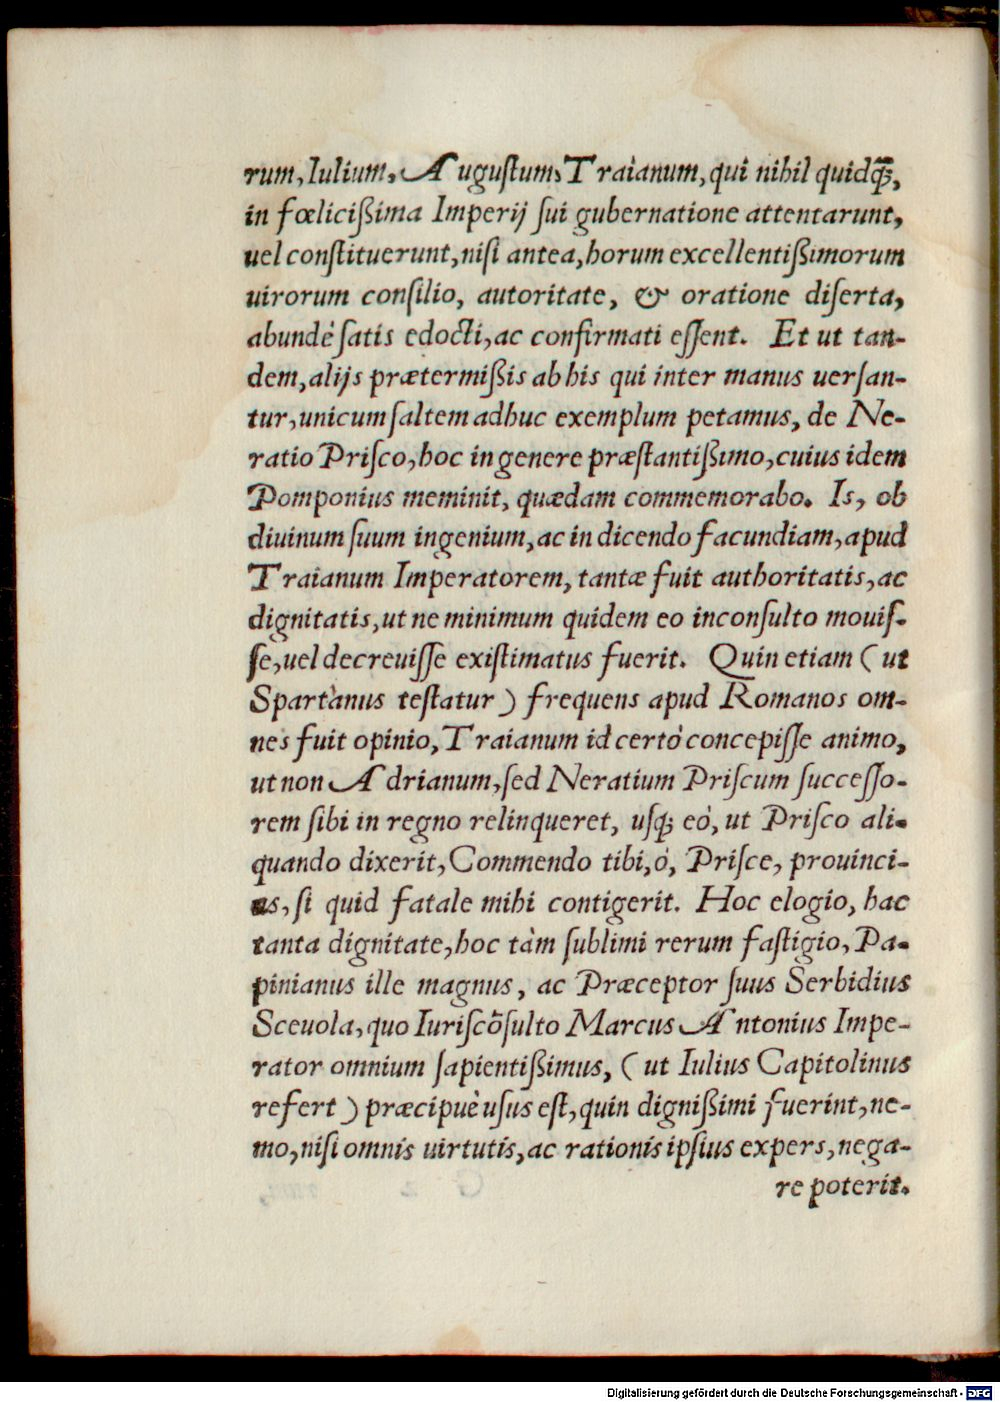 rum, Iulium, Auguſtum, Traianum, qui nihil quidq̃ꝫ,
in fœliciſsima Imperij ſui gubernatione attentarunt,
uel conſtituerunt, niſi antea, horum excellentiſsimorum
uirorum conſilio, autoritate, & oratione diſerta,
abundè ſatis edocti, ac confirmati eſſent. Et ut tan-
dem, alijs prætermiſsis ab his qui inter manus uerſan-
tur, unicum ſaltem adhuc exemplum petamus, de Ne-
ratio Priſco, hoc in genere præſtantiſsimo, cuius idem
Pomponius meminit, quædam commemorabo. Is, ob
diuinum ſuum ingenium, ac in dicendo facundiam, apud
Traianum Imperatorem, tantæ fuit authoritatis, ac
dignitatis, ut ne minimum quidem eo inconſulto mouiſ-
ſe, uel decreuiſſe exiſtimatus fuerit. Quin etiam (ut
Spartànus teſtatur) frequens apud Romanos om-
nes fuit opinio, Traianum id certò concepiſſe animo,
ut non Adrianum, ſed Neratium Priſcum ſucceſſo-
rem ſibi in regno relinqueret, uſqꝫ eò, ut Priſco ali-
quando dixerit, Commendo tibi, ò, Priſce, prouinci-
as, ſi quid fatale mihi contigerit. Hoc elogio, hac
tanta dignitate, hoc tàm ſublimi rerum faſtigio, Pa-
pinianus ille magnus, ac Præceptor ſuus Serbidius
Sceuola, quo Iuriſcõſulto Marcus Antonius Impe-
rator omnium ſapientiſsimus, (ut Iulius Capitolinus
refert) præcipuè uſus eſt, quin digniſsimi fuerint, ne-
mo, niſi omnis uirtutis, ac rationis ipſius expers, nega-
re poterit.
Digitalisierung gefördert durch die Deutsche Forschungsgemeinschaft - DFG